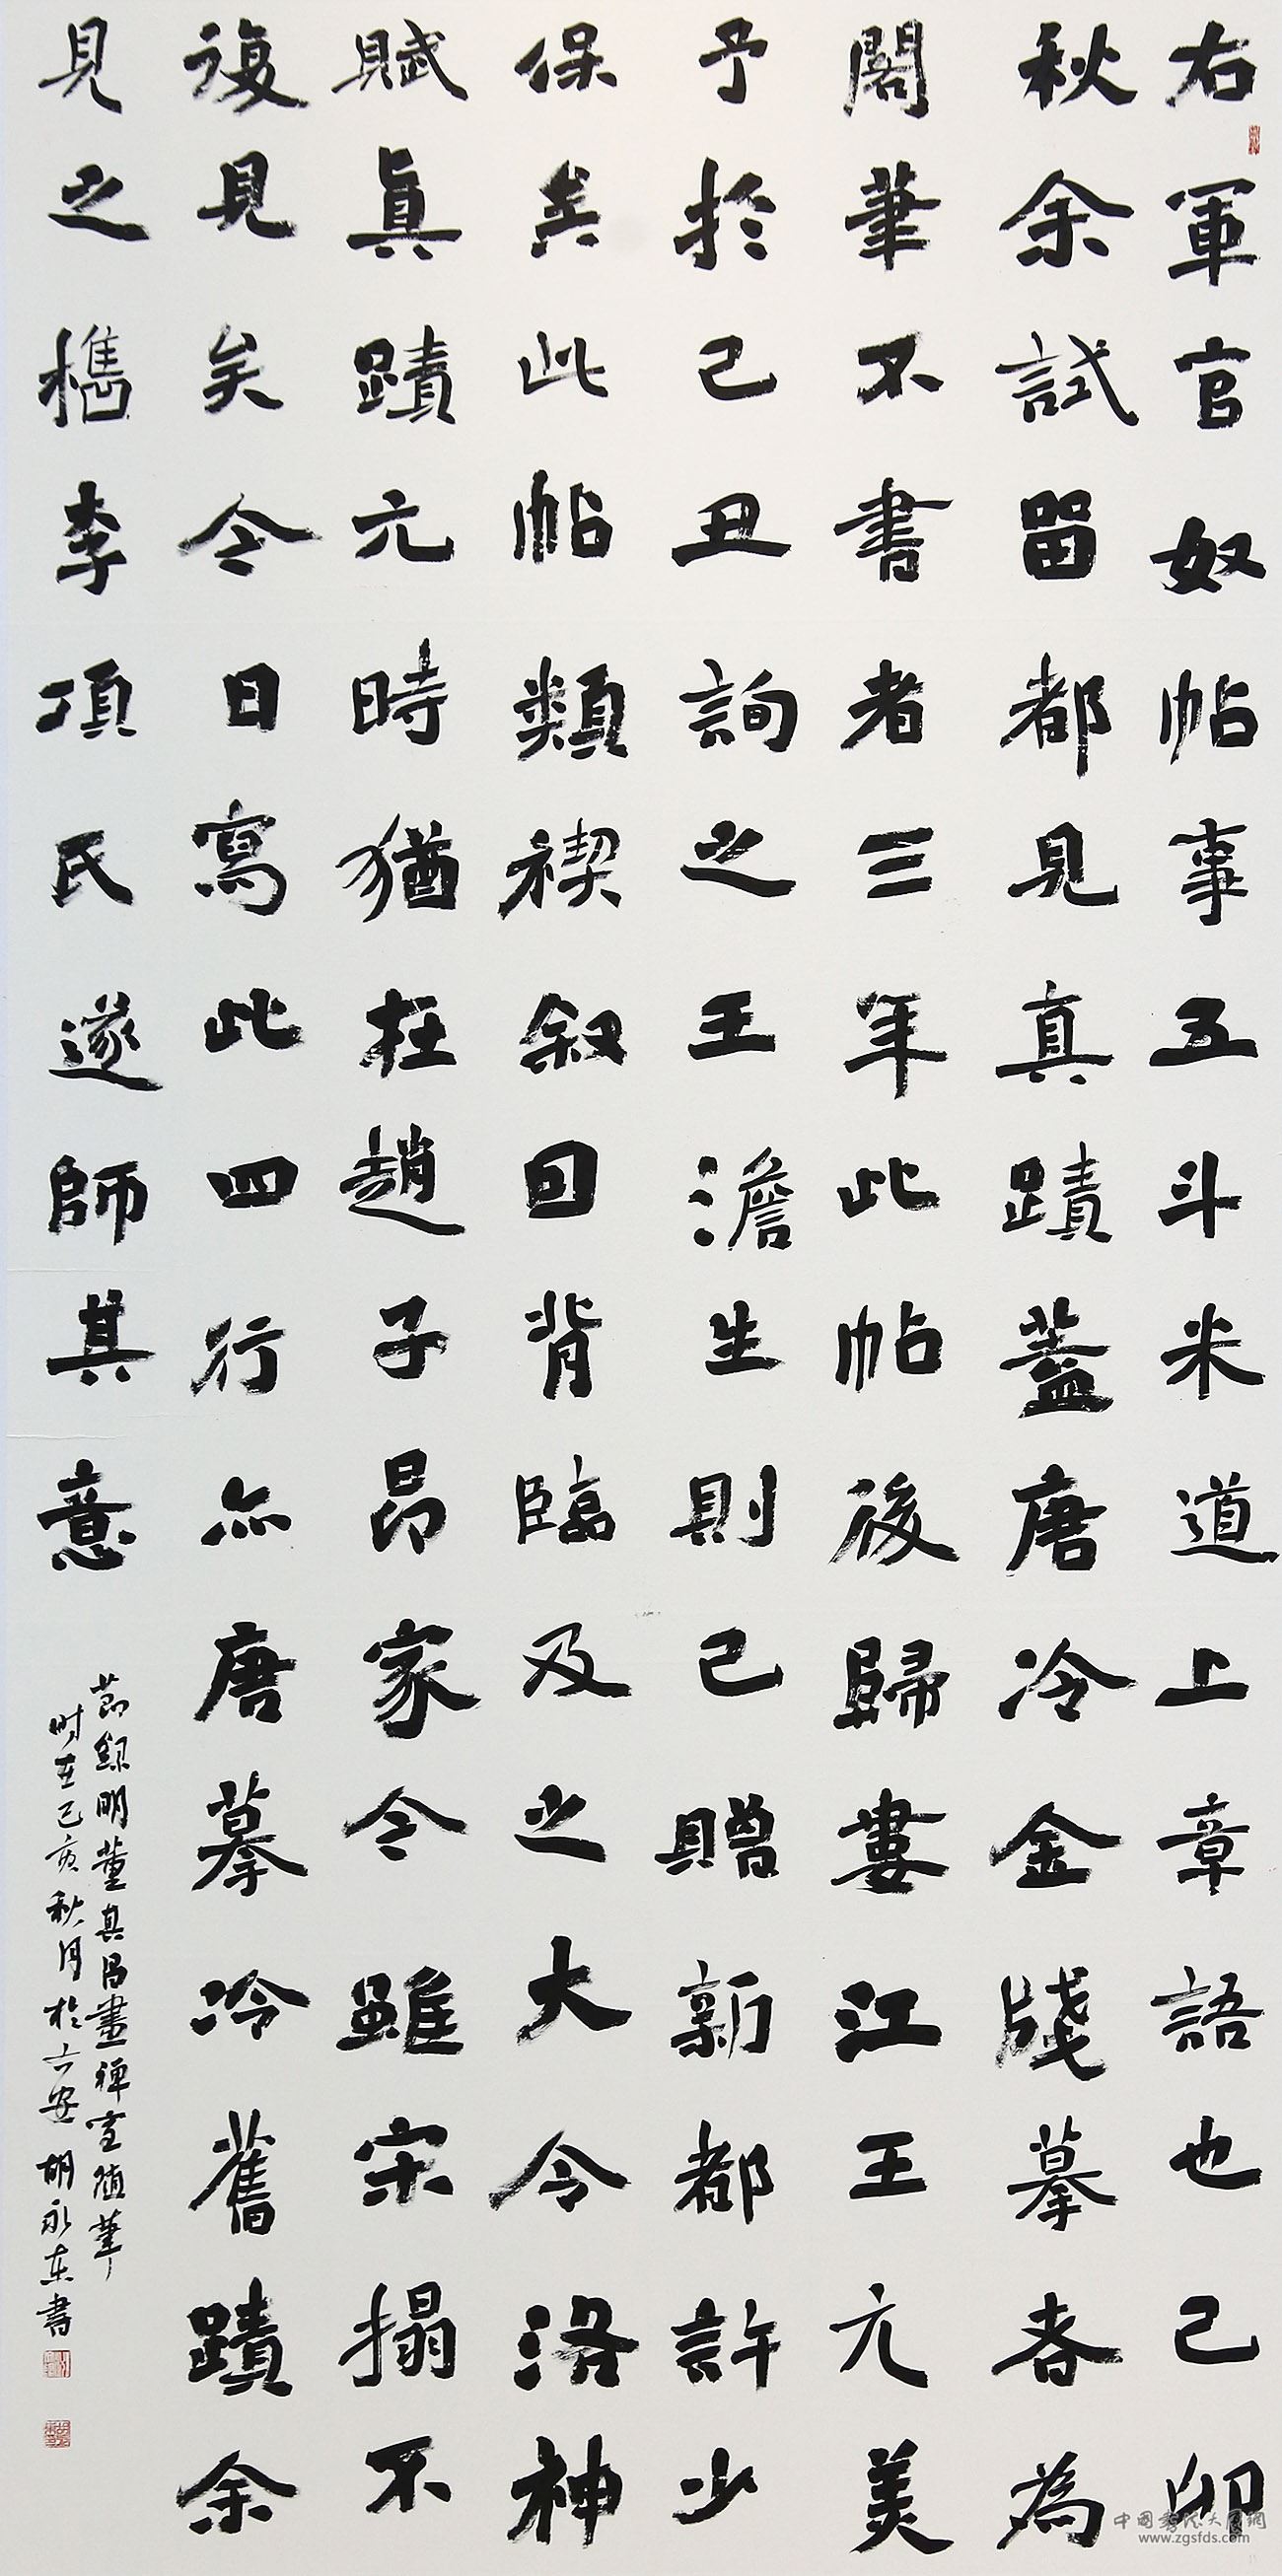 右軍官奴帖事五斗米道上章語也己卯
秋余試留都見真蹟蓋唐冷金牋摹者為
閣筆不書者三年此帖後歸婁江王元美
予於己丑詢之王澹生則已贈新都許少
保矣此帖類禊叙回背臨及之大令洛神
賦眞蹟元時猶在趙子昂家今雖宋搨不
復見矣今日寫此四行亦唐摹冷舊蹟余
見之檇李項氏遂師其意
節録明董其昌畫禪室隨筆
时在己亥秋月於六安胡永东書
www.zgsfds.com